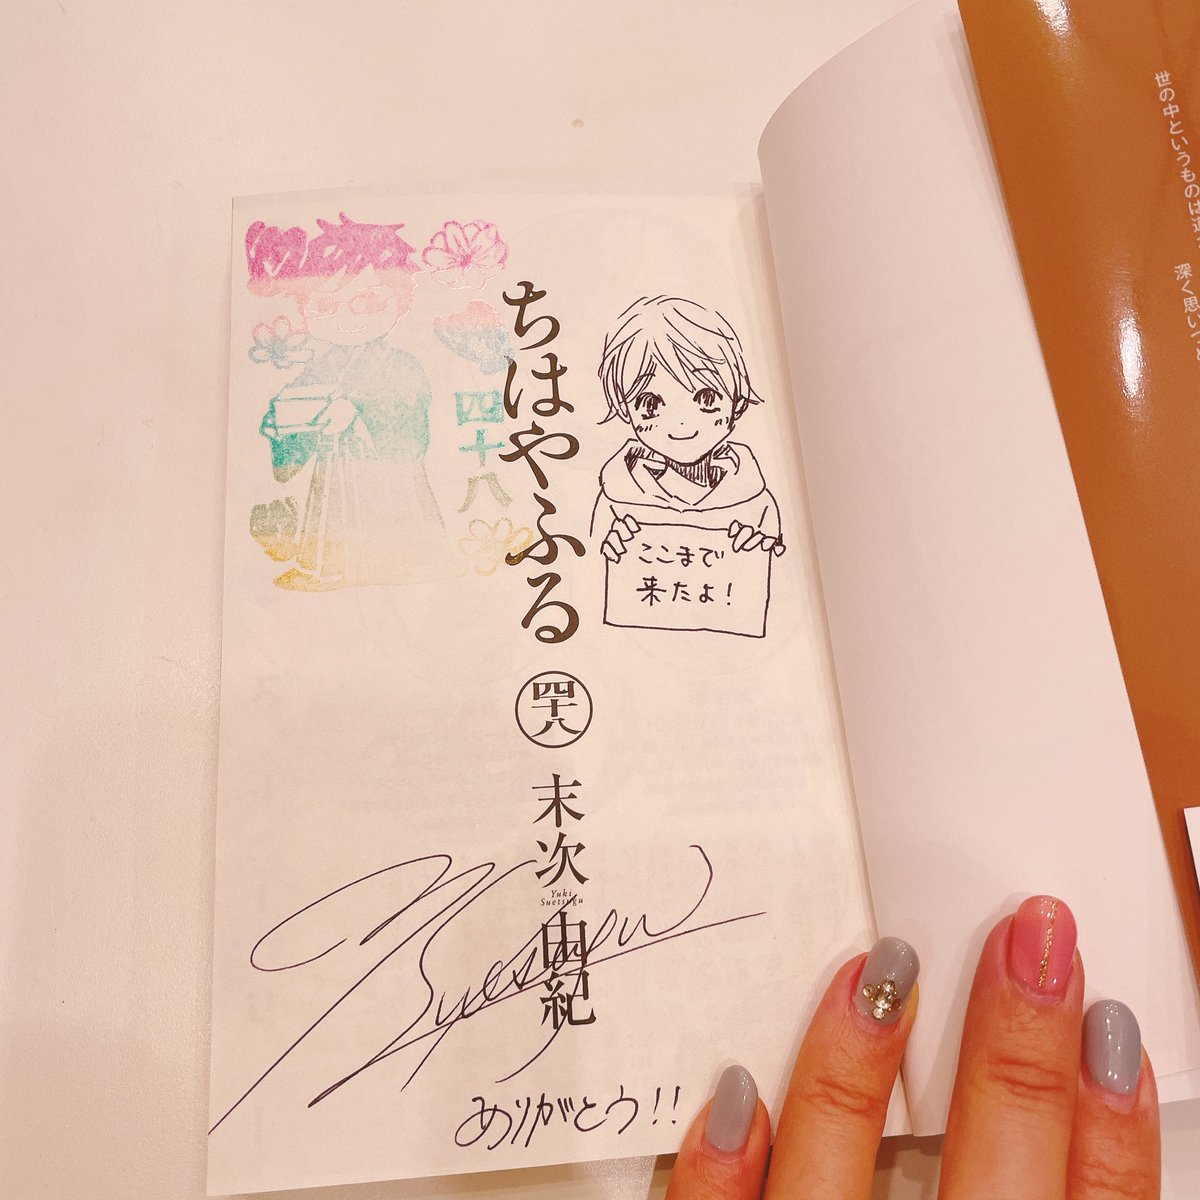 ちはやふる
四十八
末次由紀
Yuki
Suetsugu
四十八
ここまで
来たよ！
ありがとう!!
世の中というものは
深く思いつ